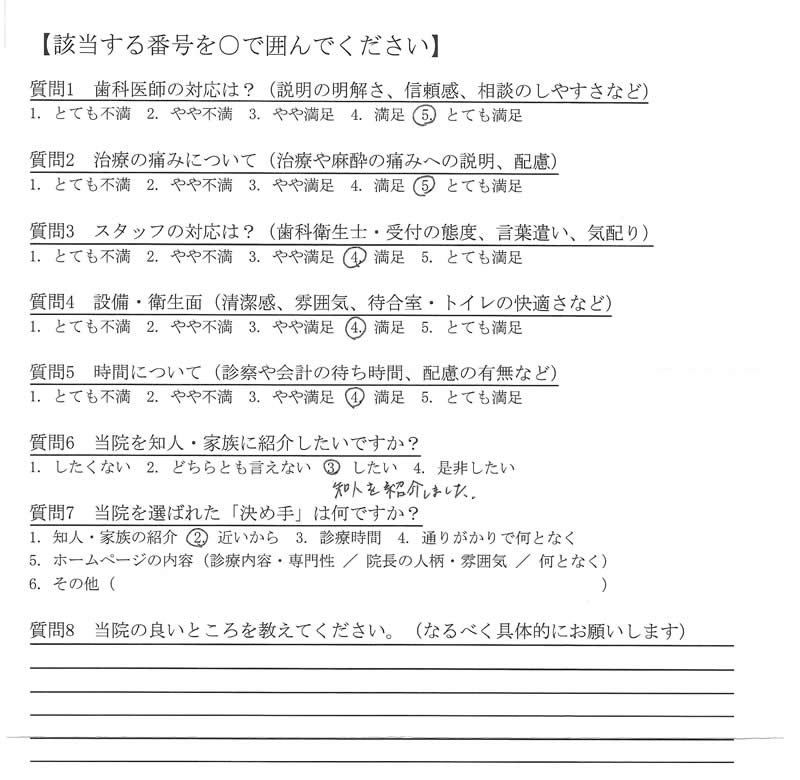 【該当する番号を○で囲んでください】
質問1　歯科医師の対応は？（説明の明解さ、信頼感、相談のしやすさなど）
1. とても不満　2. やや不満　3. やや満足　4. 満足　5. とても満足
質問2　治療の痛みについて（治療や麻酔の痛みへの説明、配慮）
1. とても不満　2. やや不満　3. やや満足　4. 満足　5　とても満足
質問3　スタッフの対応は？（歯科衛生士・受付の態度、言葉遣い、気配り）
1. とても不満　2. やや不満　3. やや満足　4. 満足　5. とても満足
質問4　設備・衛生面（清潔感、雰囲気、待合室・トイレの快適さなど）
1. とても不満　2. やや不満　3. やや満足　4. 満足　5. とても満足
質問5　時間について（診察や会計の待ち時間、配慮の有無など）
1. とても不満　2. やや不満　3. やや満足　4. 満足　5. とても満足
質問6　当院を知人・家族に紹介したいですか？
1. したくない　2. どちらとも言えない　3　したい　4. 是非したい
知人を紹介しました。
質問7　当院を選ばれた「決め手」は何ですか？
1. 知人・家族の紹介　2. 近いから　3. 診療時間　4. 通りがかりで何となく
5. ホームページの内容（診療内容・専門性 ／ 院長の人柄・雰囲気 ／ 何となく）
6. その他（　　　　　　　　　　　　　　　　　　　　）
質問8　当院の良いところを教えてください。（なるべく具体的にお願いします）